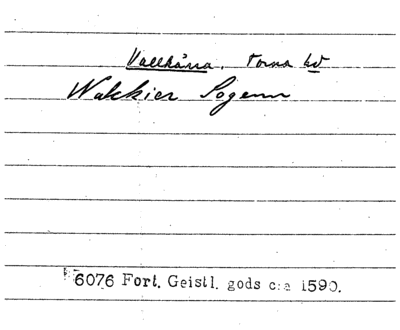 Vallkärra, Torna hd
Walkier Sogenn
6076 Fort. Geistl. gods c:a 1590.